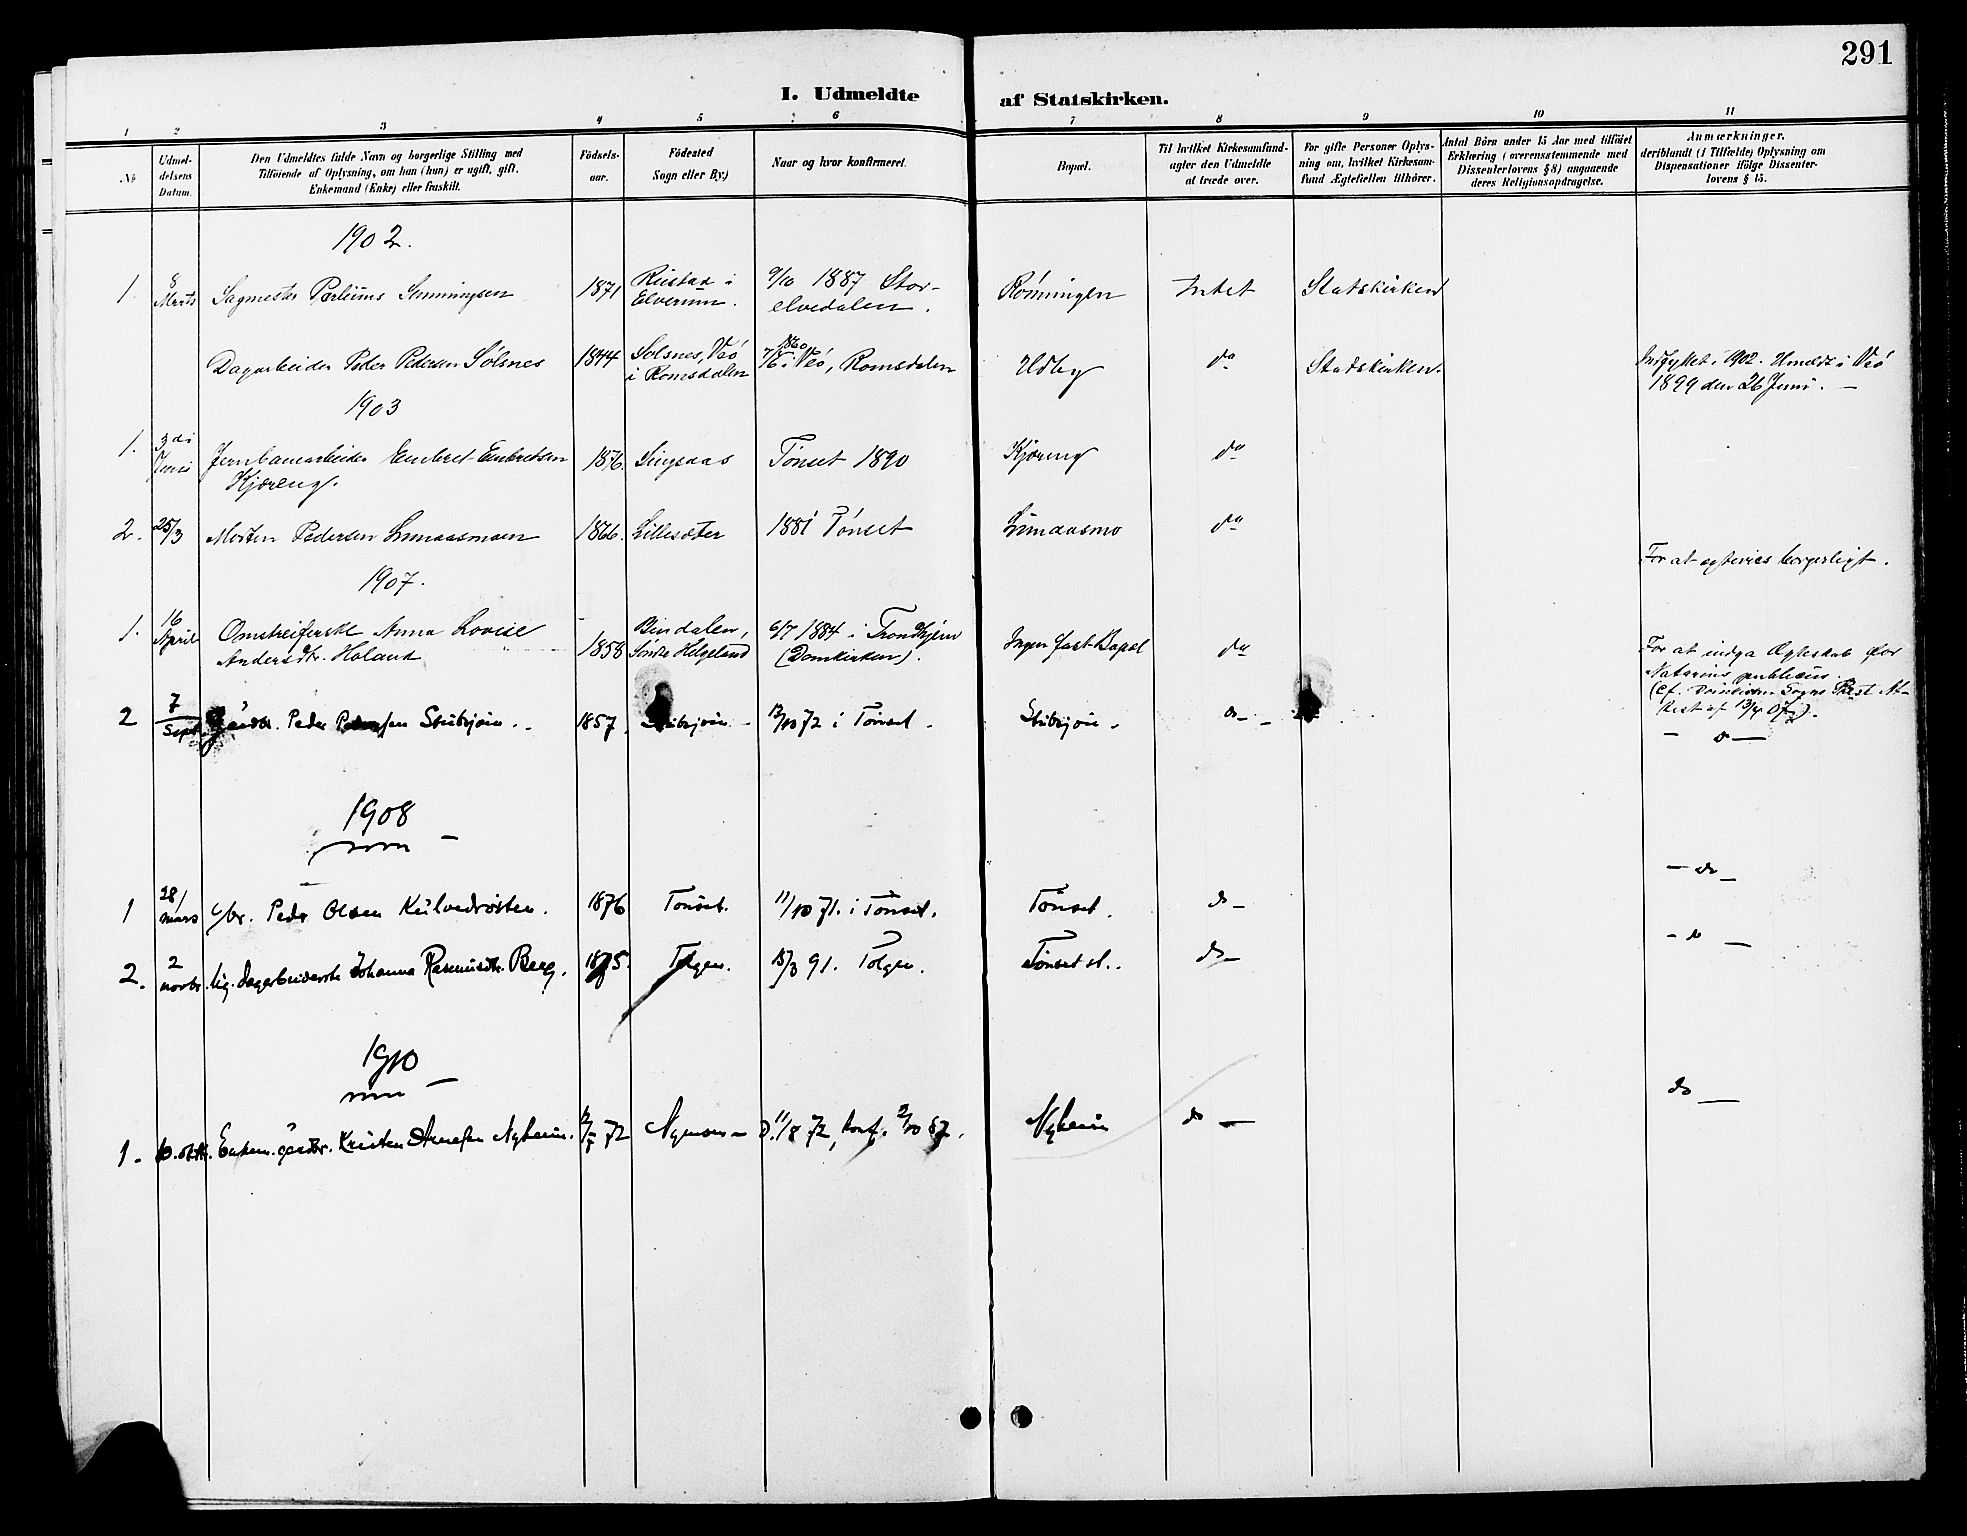 291
I. Udmeldte af Statskirken.
1 2 3 4 5 6 7 8 9 10 11
No
Udmel-
delsens
Datum.
Den Udmeldtes fulde Navn og borgerlige Stilling med
Tilføiende af Oplysning, om han (hun) er ugift, gift,
Enkemand (Enke) eller fraskilt.
Fødsels-
aar.
Fødested
Sogn eller By.)
Naar og hvor konfirmeret.
Bopæl.
Til hvilket Kirkesamfund-
agter den Udmeldte
at træde over.
For gifte Personer Oplys-
ning om, hvilket Kirkesam-
fund Ægtefællen tilhører.
Antal Børn under 15 Aar med tilføiet
Erklæring (overensstemmende med
Dissenterlovens § 8) angaaende
deres Religionsopdragelse.
Anmærkninger,
deriblandt (i Tilfælde) Oplysning om
Dispensationer ifølge Dissenter-
lovens § 15.
1902.
1. 8 Marts Sagmester 1871 Rustad i
Elverum.
9/10 1887 Stor-
elvedalen.
Rømningen Intet Statskirken
Dagarbeider Peder Pedersen Sølsnes 1844 Solsnes, Veø
i Romsdalen
1860
Veø, Romsdalen
Udby do Statskirken.
Indflyttet i 1902. Udmeldt i Veø
1899 den 26 Juni. —
1903
1. 3di
Juni
Jernbanearbeider Embret Embretsen
Kjæreng.
1876. Singsaas Tønset 1890 Kjæreng do
2. 25/3 Morten Pedersen 1866. Lillesæter 1881 Tønset do
For at egtevies borgerligt.
1907.
1. 16
April
Omstreiferske Anna Lovise
Andersdtr. Holand
1858 Bindalen,
Søndre Helgeland
6/7 1884 i Trondhjem
(Domkirken).
Ingen fast Bopæl do
For at indgaa Ægteskab for
Notarius publicus.
2 7
Sept.
Gaardbr. Peder Pedersen Stubsjøen. 1857. Stubsjøen 13/10 72 i Tønset. Stubsjøen. do — — do —
1908
1 28/
mars
Peder Olsen Kulvedrøsten. 1876 Tønset. 11/10 71. i Tønset. Tønset. do — — do —
2. 2
novbr.
Johanna Rasmusdtr. Berg. 1875. Tolgen. 15/3 91. Tolgen. Tønset st. do — — do —
1910
1. Enkem. gaardbr. Kristen Arnesen Nyheim. 72 Nymoen 11/8 72, konf. 2/10 87. Nyheim do — do —